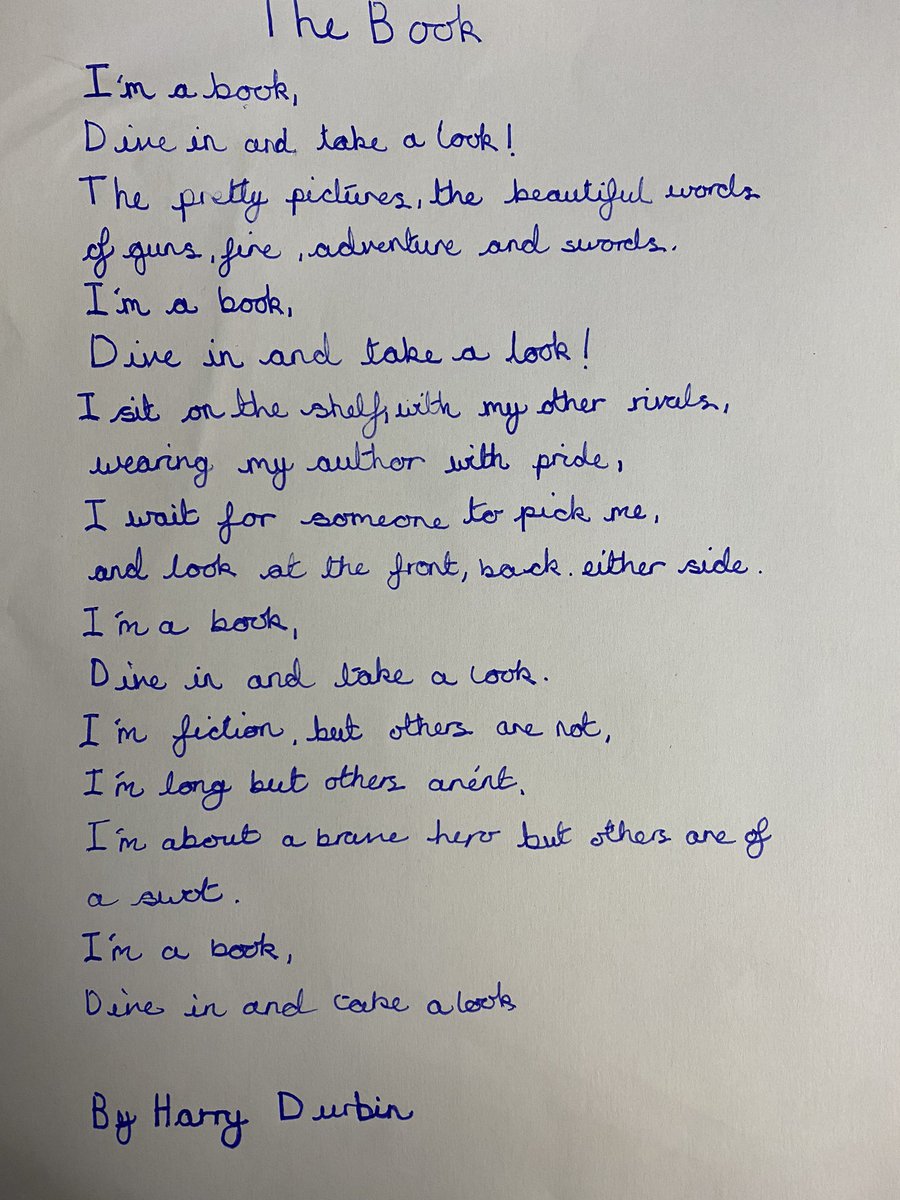 The Book
I'm a book,
Dive in and take a look!
The pretty pictures, the beautiful words
of guns, fire, adventure and swords.
I'm a book,
Dive in and take a look!
I sit on the shelf, with my other rivals,
wearing my author with pride,
I wait for someone to pick me,
and look at the front, back. either side.
I'm a book,
Dive in and take a look.
I'm fiction, but others are not,
I'm long but others are'nt.
I'm about a brave hero but others are of
a swot.
I'm a book,
Dive in and take a look
By Harry Durbin